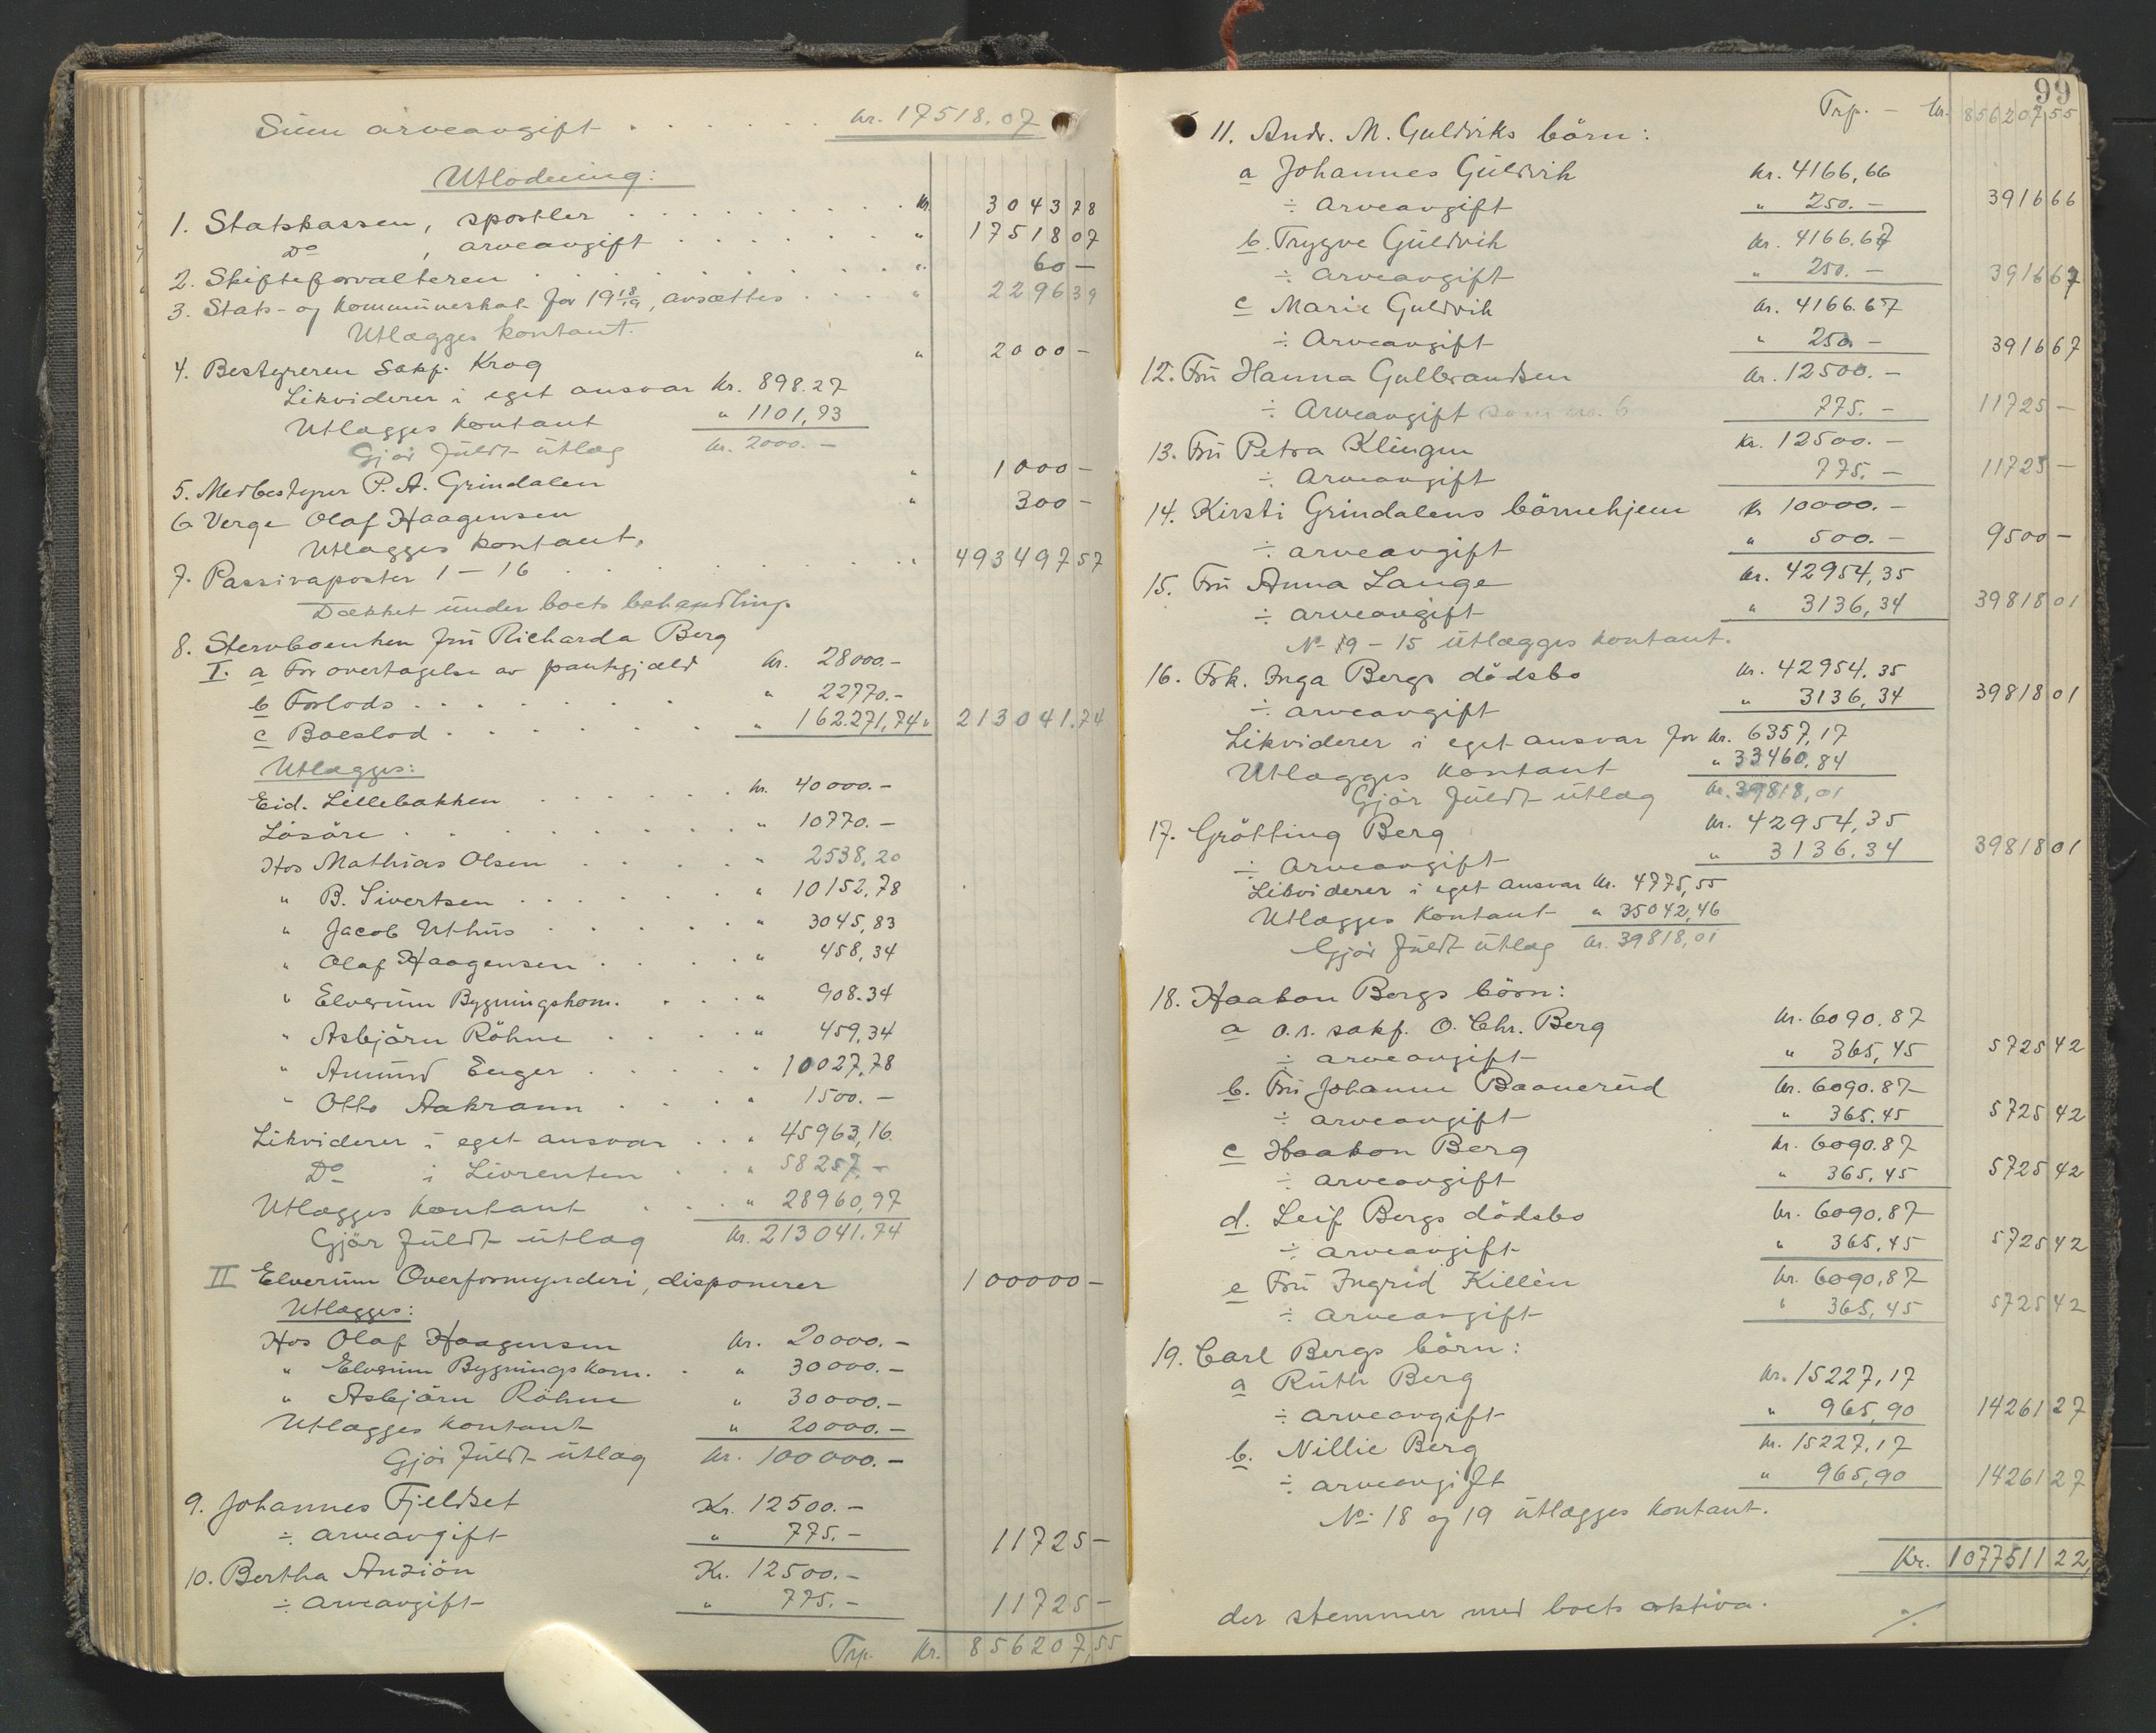 Sum arveavgift . . . . . . kr. 17518.07
Utlodning:
1. Statskassen, sportler . . . . . . kr. 3043 78
Do , arveavgift . . . . . " 17518 07
2. Skifteforvalteren . . . . . . " 60 —
3. Stats- og kommuneskat for 19 18/19, avsættes . . . " 2296 39
Utlægges kontant.
4. Bestyreren Sakf. Krog " 2000 —
Likviderer i eget ansvar kr. 898.27
Utlægges kontant " 1101,73
Gjør fuldt utlæg kr. 2000. —
5. Medbestyrer P. A. Grindalen " 1000 —
6 Verge Olaf Haagensen " 300 —
Utlægges kontant.
7. Passivaposter 1 — 16 . . . . . . " 493497 57
Dækket under boets behandling
8. Stervboenken fru Richarda Berg
I. a For overtagelse av pantgjæld kr. 28000. —
b Forlods . . . . . . " 22770. —
c Boeslod . . . . . . " 162.271,74 " 213041.74
Utlægges:
Eid. Lillebakken . . . . . kr. 40000. —
Løsøre . . . . . . " 10770. —
Hos Mathias Olsen . . . . " 2538,20
" B. Sivertsen . . . . . " 10152,78
" Jacob Uthus . . . . . " 3045,83
" Olaf Haagensen . . . . " 458,34
" Elverum Bygningskom. . . . " 908.34
" Asbjørn Röhne . . . . " 459,34
" Amund Enger . . . . " 10027,78
" Otto Aakrann . . . . " 1500. —
Likviderer i eget ansvar . . " 45963,16
Do i Livrenten . . " 58257. —
Utlægges kontant . . . " 28960,97
Gjör fuldt utlæg kr. 213041.74
II Elverum Overformynderi, disponerer 100000 —
Utlægges:
Hos Olaf Haagensen kr. 20000. —
" Elverum Bygningskom. . " 30000. —
" Asbjørn Röhne " 30000. —
Utlægges kontant " 20000. —
Gjör fuldt utlæg kr. 100000. —
9. Johannes Fjeldset Kr. 12500. —
÷ arveavgift " 775. — 11725 —
10. Bertha Anziön Kr. 12500. —
÷ arveavgift " 775. — 11725 —
Trp. Kr. 856207,55
99
Trp. — kr. 856207 55
11. Andr. M. Guldviks börn:
a Johannes Guldvik kr. 4166,66
÷ arveavgift " 250. — 3916 66
b. Trygve Guldvik kr. 4166.67
÷ arveavgift " 250. — 3916 67
c Marie Guldvik kr. 4166.67
÷ Arveavgift " 250. — 3916 67
12. Fru Hanna Gulbrandsen kr. 12500. —
÷ Arveavgift som no. 6 775. — 11725 —
13. Fru Petra Klingen Kr. 12500. —
÷ Arveavgift 775. — 11725 —
14. Kirsti Grindalens börnehjem kr 10000. —
÷ arveavgift " 500. — 9500 —
15. Fru Anna Lange kr. 42954,35
÷ arveavgift " 3136,34 39818 01
No 9 — 15 utlægges kontant.
16. Frk. Inga Bergs dödsbo kr. 42954.35
÷ arveavgift " 3136,34 39818 01
Likviderer i eget ansvar for kr. 6357,17
Utlægges kontant " 33460,84
Gjör fuldt utlæg kr. 39818,01
17. Grötting Berg kr. 42954,35
÷ Arveavgift " 3136.34 39818 01
Likviderer i eget ansvar kr. 4775,55
Utlægges kontant " 35042,46
Gjör fuldt utlæg kr. 39818,01
18. Haakon Bergs börn:
a o.r. sakf. O. Chr. Berg kr. 6090.87
÷ arveavgift " 365,45 5725 42
b. Fru Johanne Baanerud kr. 6090.87
÷ arveavgift " 365.45 5725 42
c Haakon Berg kr. 6090.87
÷ arveavgift " 365,45 5725 42
d. Leif Bergs dödsbo kr. 6090.87
÷ arveavgift " 365,45 5725 42
e Fru Ingrid Killèn kr. 6090,87
÷ arveavgift " 365,45 5725 42
19. Carl Bergs börn:
a Ruth Berg kr. 15227,17
÷ arveavgift " 965,90 14261 27
b. Nillie Berg kr. 15227,17
÷ arveavgift " 965,90 14261 27
No 18 og 19 utlægges kontant.
Kr. 1077511 22,
der stemmer med boets aktiva.